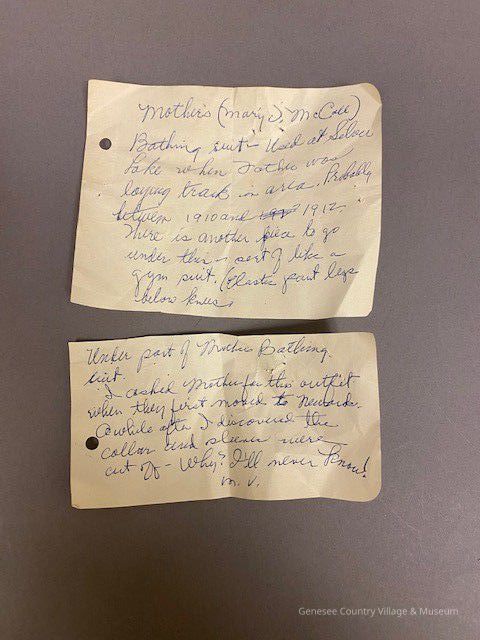 Mother's (Mary J. McCall)
Bathing suit - Used at Silver
Lake when Father was
laying track in area. Probably
between 1910 and 1912.
There is another piece to go
under this - sort of like a
gym suit. (Elastic pant legs
below knees.
Under part of Mother's Bathing
suit.
I asked Mother for this outfit
when they first moved to Newark.
Awhile after I discovered the
collar and sleeves were
cut off - Why? I'll never know!
M. V.
Genesee Country Village & Museum